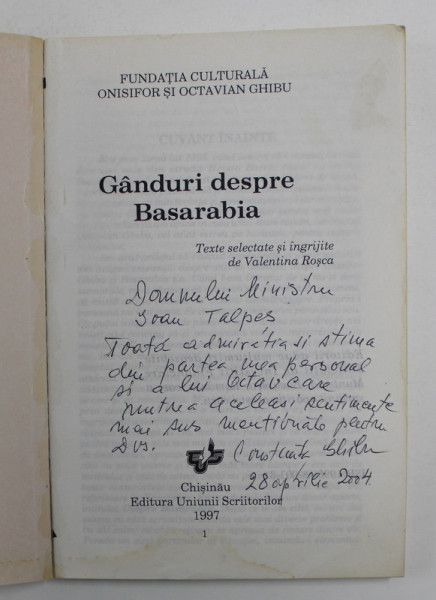 FUNDAȚIA CULTURALĂ
ONISIFOR ȘI OCTAVIAN GHIBU
CUVÂNT ÎNAINTE
Gânduri despre
Basarabia
Texte selectate și îngrijite
de Valentina Roșca
Domnului Ministru
Ioan Talpeș
Toată admirația si stima
din partea mea personal
si a lui Octav care
aceleasi sentimente
mai sus mentionate pentru
Dvs.
Constanța Ghibu
28 aprilie 2004
Chișinău
Editura Uniunii Scriitorilor
1997
1